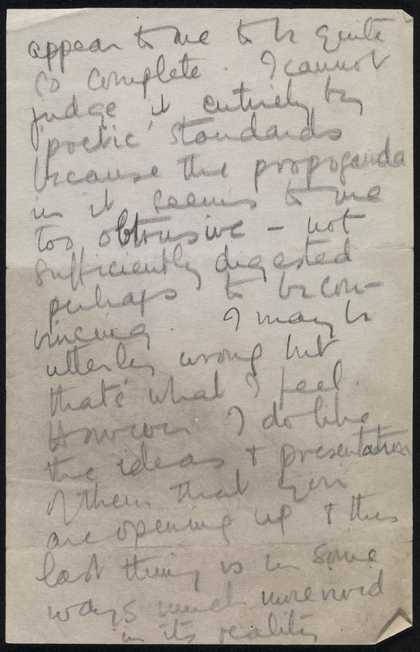 appear to me to be quite
so complete. I cannot
judge it entirely by
'poetic' standards
because the propoganda
in it seems to me
too obtrusive – not
sufficiently digested
perhaps to be con-
vincing. I may be
utterly wrong but
that's what I feel.
However I do like
the ideas & presentation
of them that you
are opening up & this
last thing is in some
ways much more
in its reality